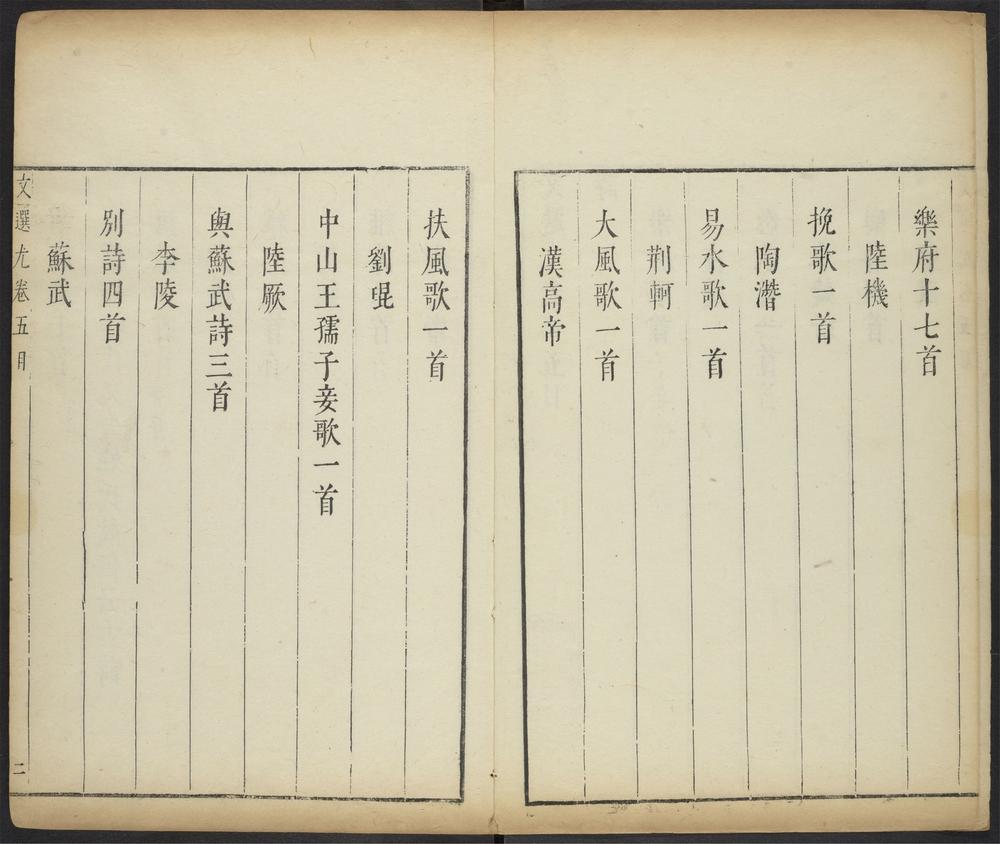 樂府十七首
陸機
挽歌一首
陶潛
易水歌一首
荆軻
大風歌一首
漢高帝
扶風歌一首
劉琨
中山王孺子妾歌一首
陸厥
與蘇武詩三首
李陵
別詩四首
蘇武
文選尤卷五目
二